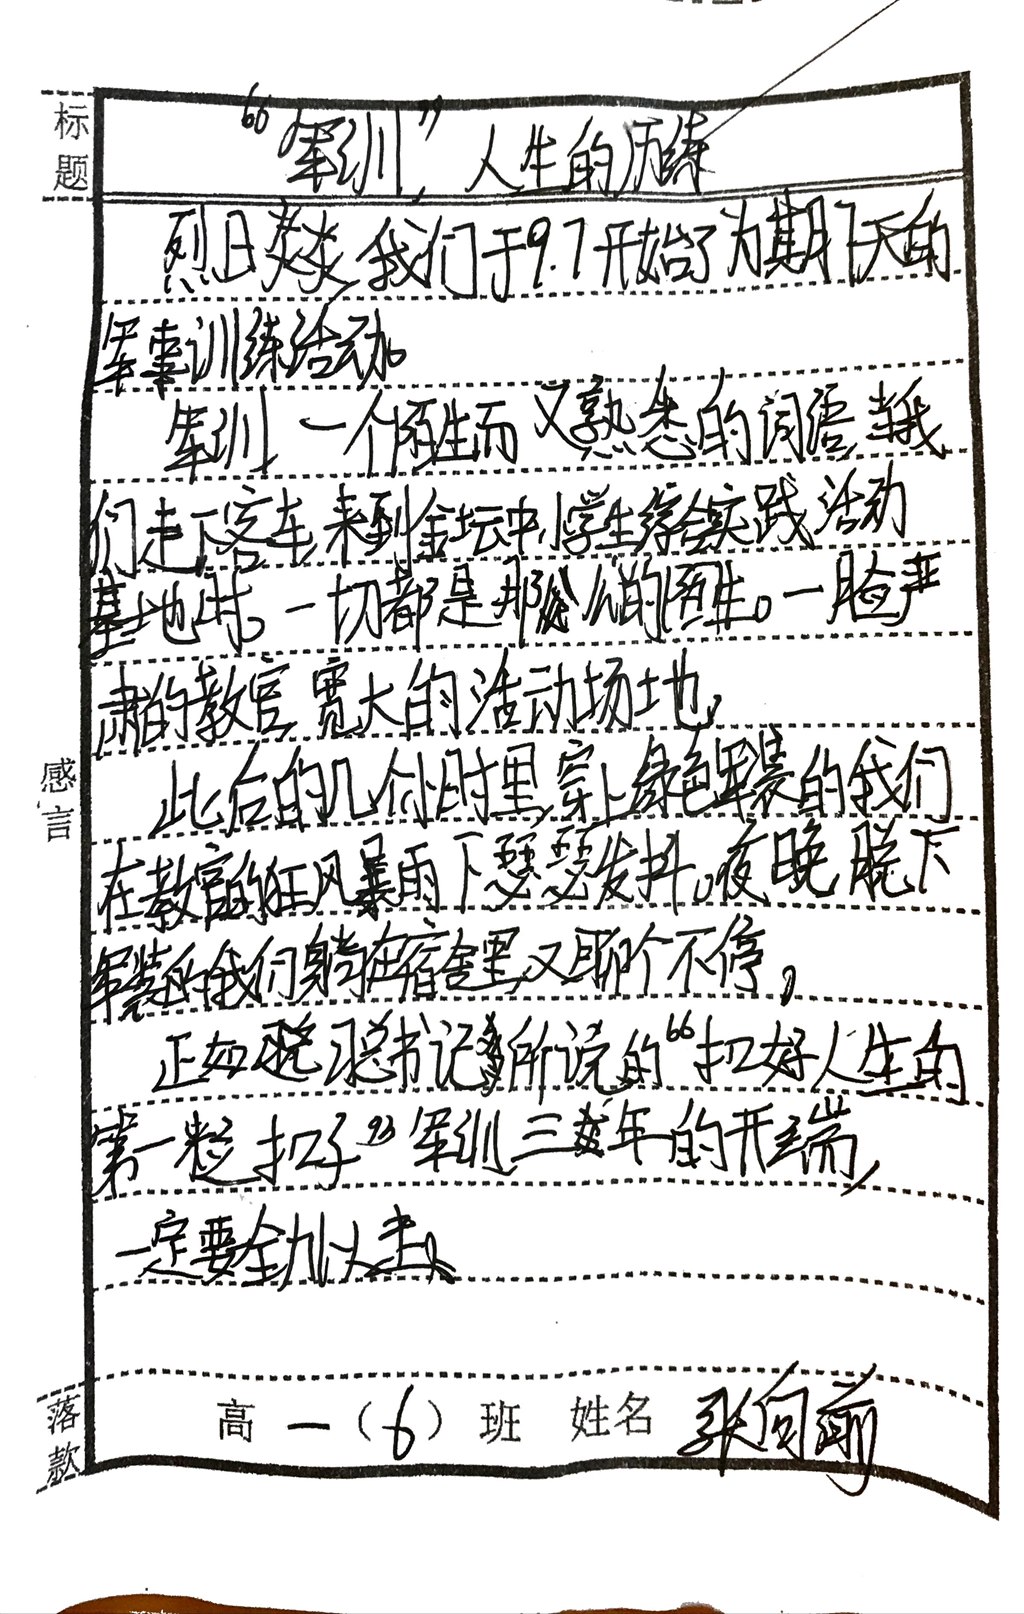 标题
“军训”，人生的历练
烈日炎炎，我们于9.7开始了为期7天的
军事训练活动。
军训，一个陌生而又熟悉的词语，当我
们走下客车，来到金坛中小学生综合实践活动
基地时。一切都是那么的陌生。一脸严
肃的教官，宽大的活动场地，
感言
此后的几个小时里，穿上绿色军装的我们
在教官的狂风暴雨下瑟瑟发抖。夜晚，脱下
军装的我们躺在宿舍里，又聊个不停，
正如聪书记所说的“扣好人生的
第一粒扣子”军训，三年的开端，
一定要全力以赴。
落款
高一（6）班 姓名 张向前